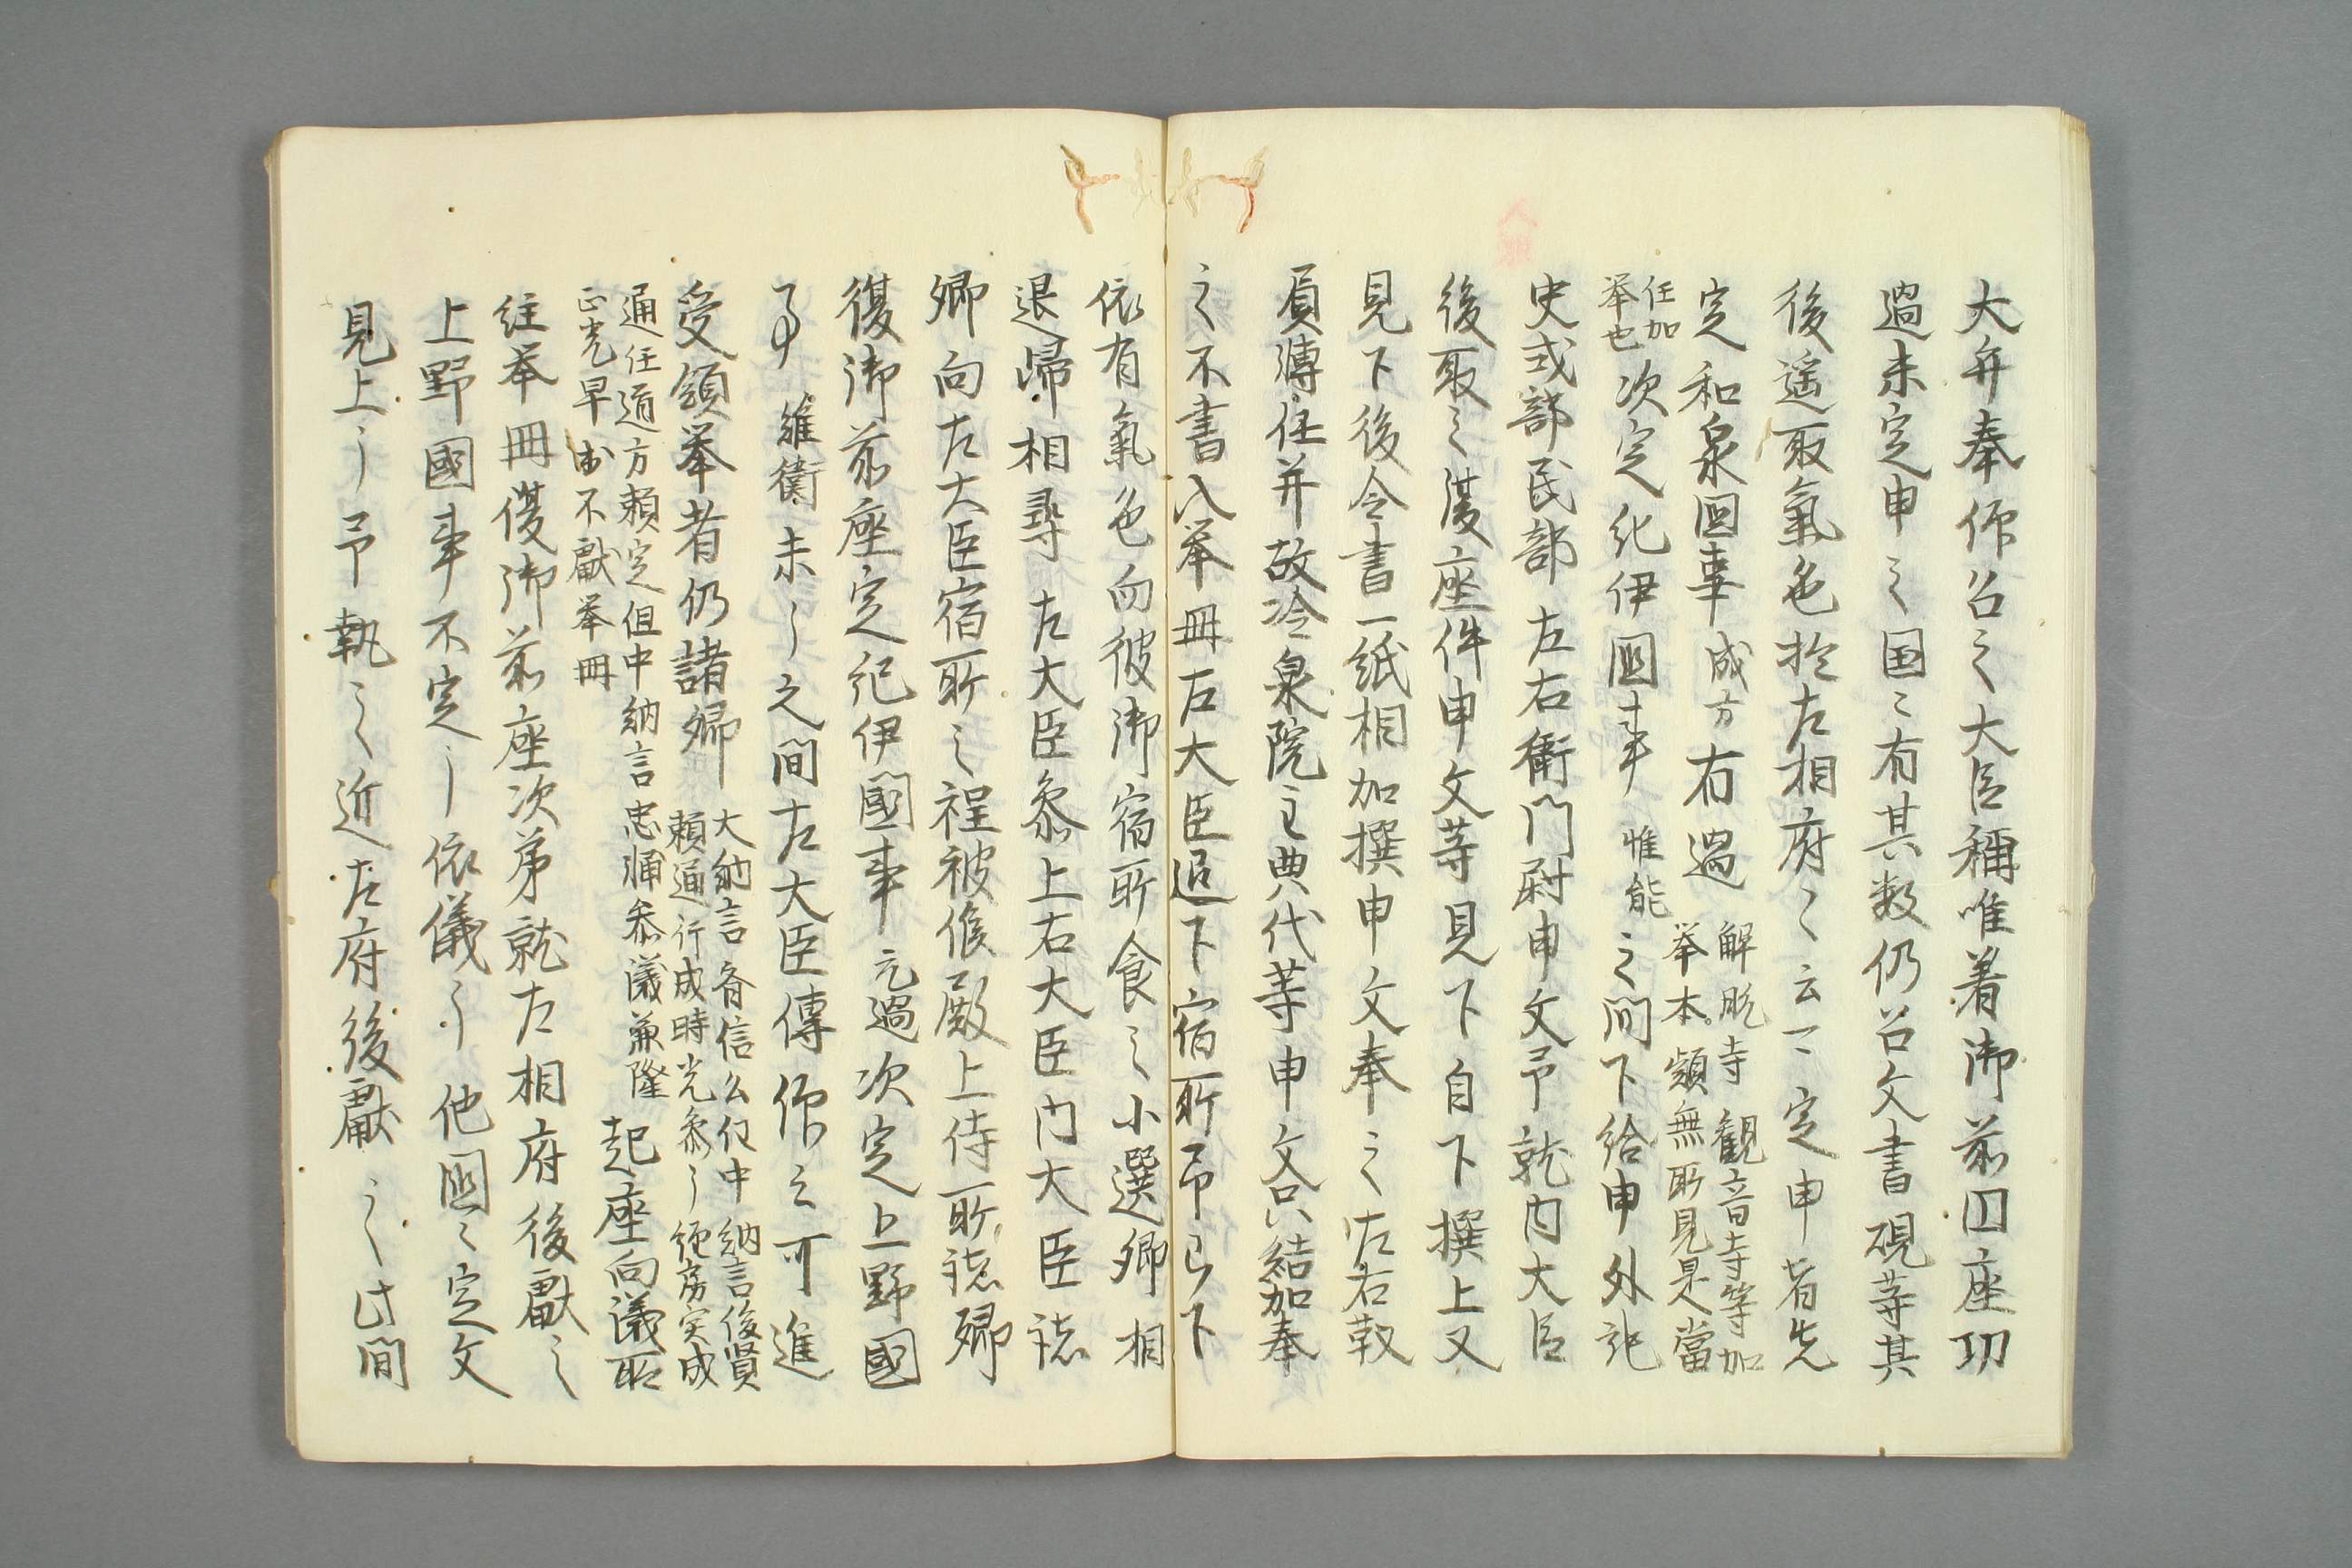 大弁奉仰召之大臣稱唯着御前円座功
過未定申之国〻有其数仍召文書硯等其
後遥取氣色於左相府〻云一〻定申者先
定和泉国事成方右過解脱寺観音寺等加
挙本頴無所見是當
任加
挙也次定紀伊國事惟能之間下給申外記
史式部民部左右衛門尉申文予就内大臣
後取之復座件申文等見下自下撰上又
見下後令書一紙相加撰申文奉之左右敕
負轉任并故冷泉院主典代等申文只結加奉
之不書入挙冊左大臣退下宿所予已下
依有氣色向彼御宿所食之小選卿相
退歸相尋左大臣参上右大臣内大臣諸
卿向左大臣宿所之程被候殿上侍所諸卿
復御前座定紀伊國事元過次定上野國
事維衡未〻之間左大臣傳仰云可進
受領挙者仍諸卿大納言斉信公任中納言俊賢
頼通行成時光参〻經房実成
通任道方頼定但中納言忠輔参議兼隆
正光早出不獻挙冊起座向議所
注挙冊復御前座次第就左相府後獻之
上野國事不定〻依儀〻他國〻定文
見上〻予執之近左府後獻之此間